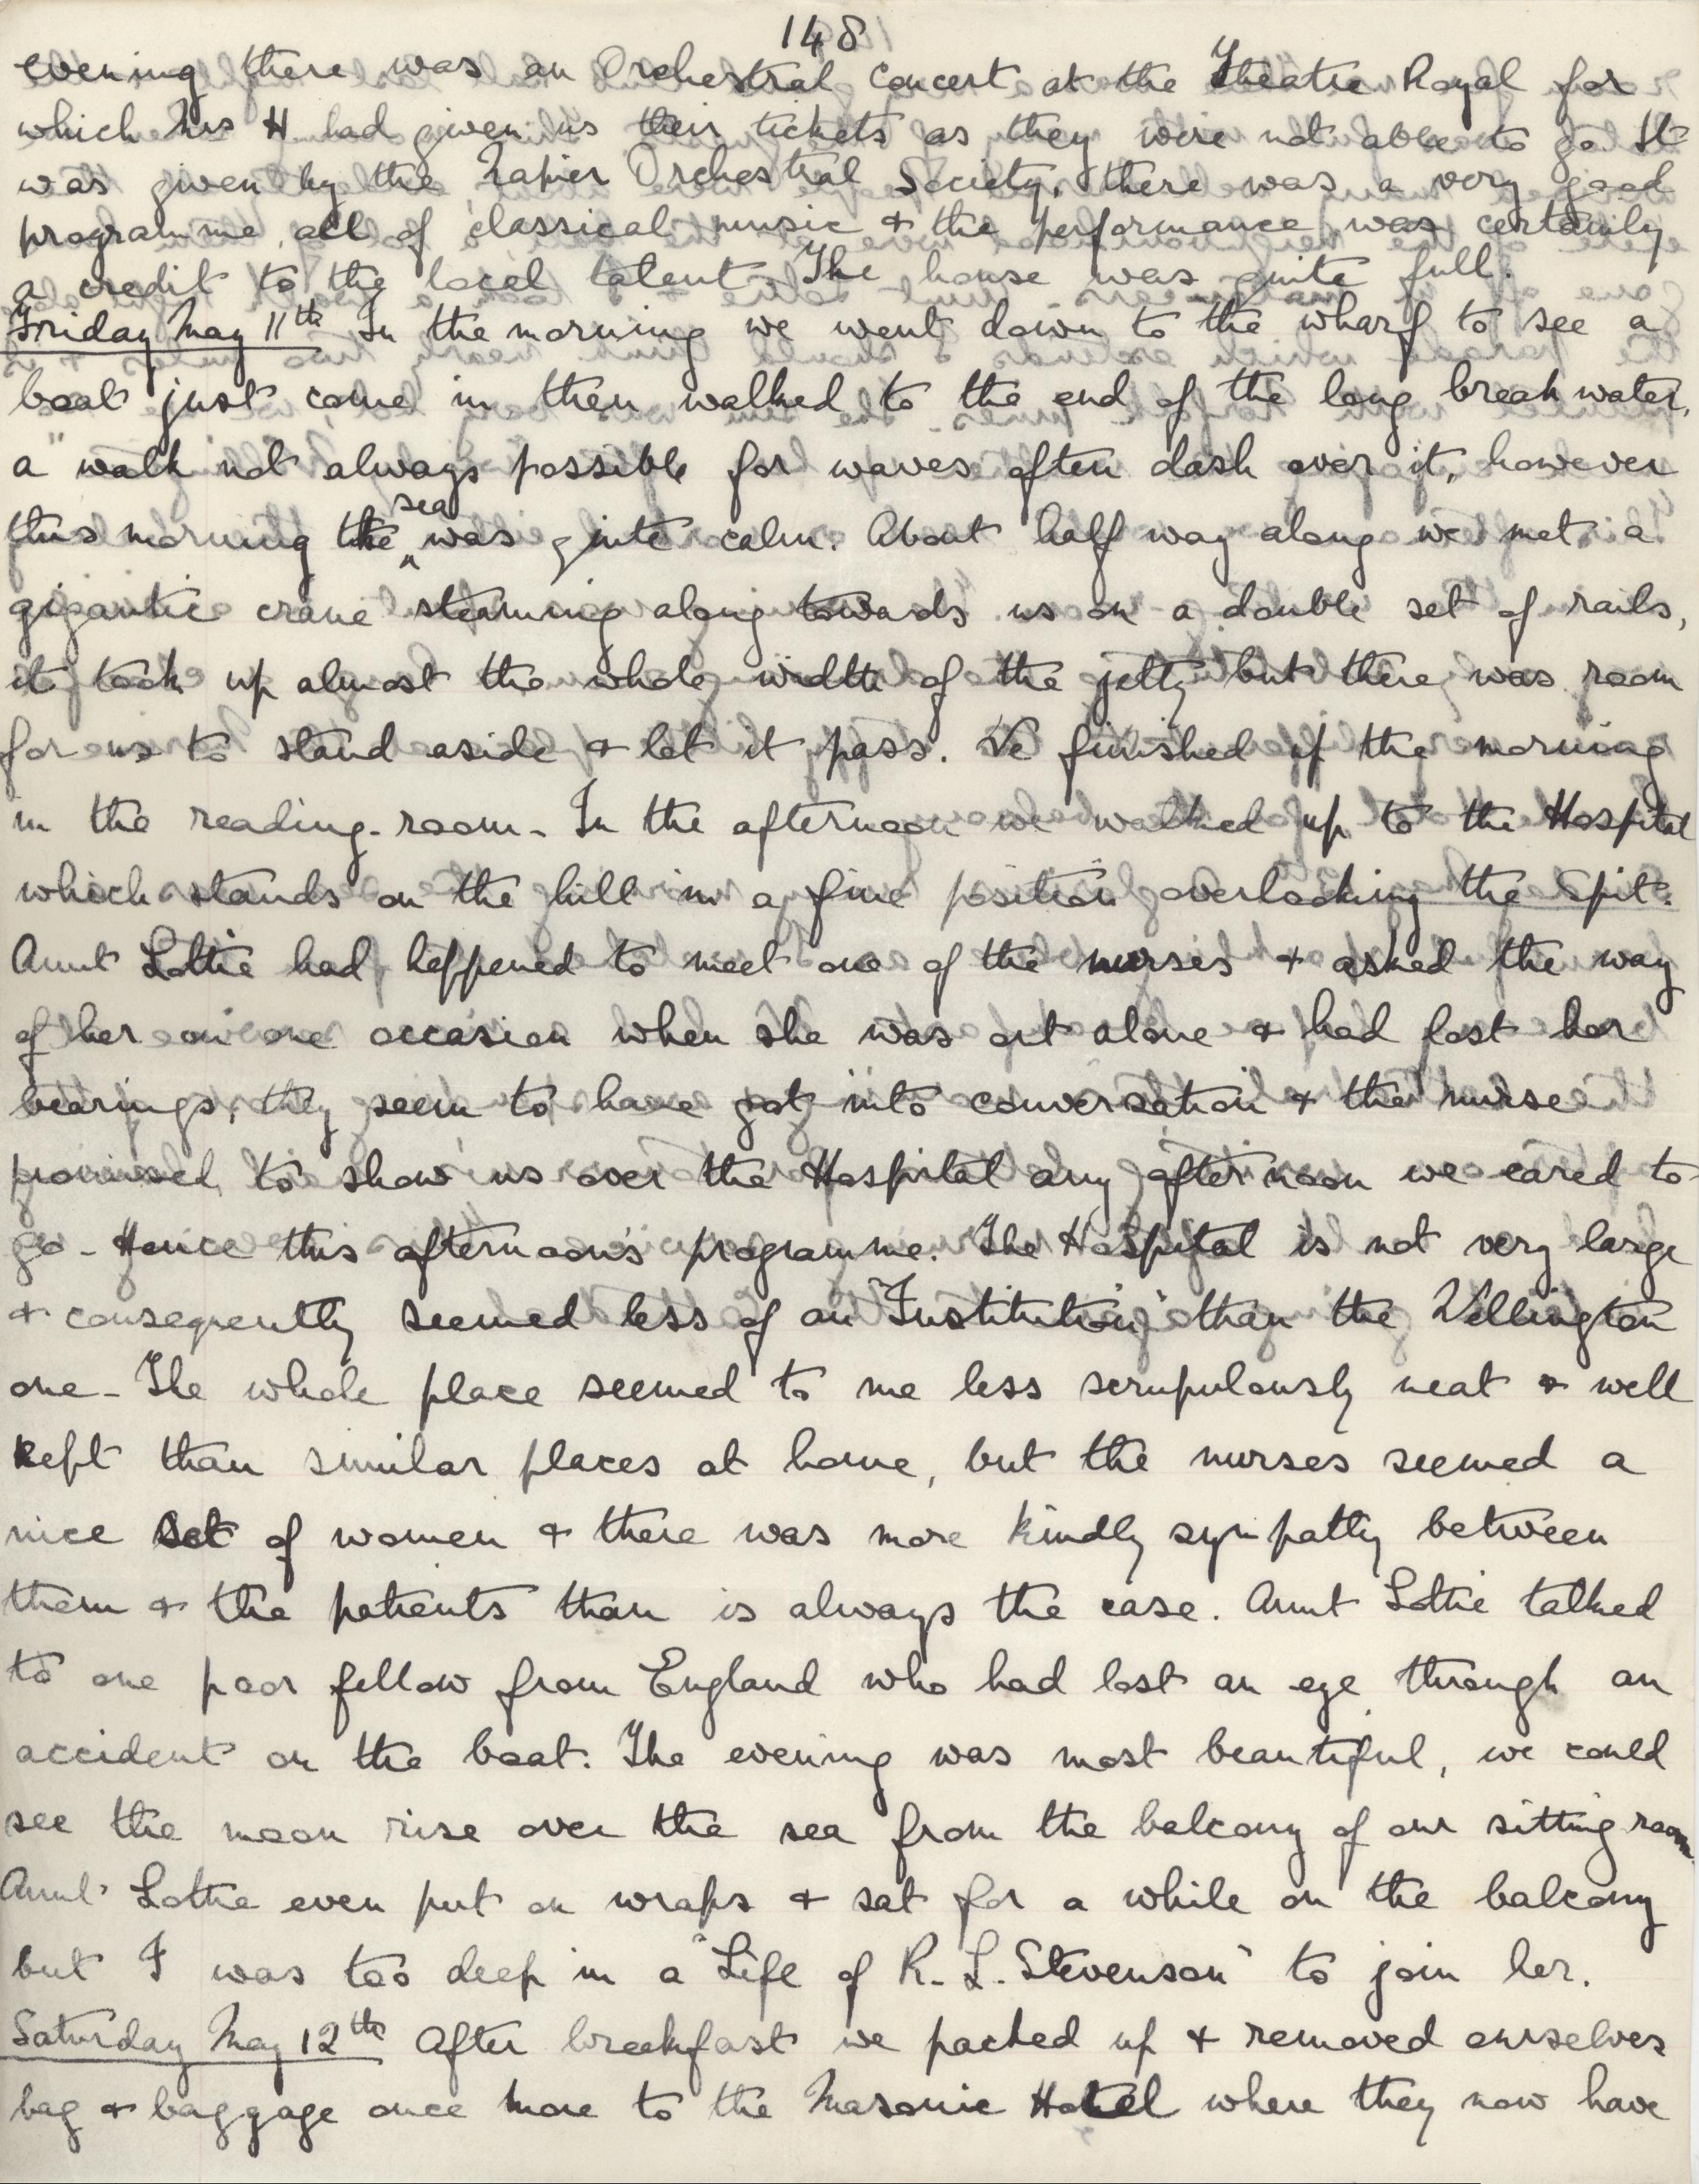 148
evening there was an Orchestral Concert at the Theatre Royal for
which Mrs H had given us their tickets as they were not able to go. It
was given by the Napier Orchestral Society, there was a very good
programme, all of classical music & the performance was certainly
a credit to the local talent. The house was quite full.
Friday May 11th In the morning we went down to the wharf to see a
boat just come in then walked to the end of the long breakwater,
a walk not always possible for waves often dash over it, however
this morning the sea was quite calm. About half way along we met a
gigantic crane steaming along towards us on a double set of rails,
it took up almost the whole width of the jetty but there was room
for us to stand aside & let it pass. We finished up the morning
in the reading-room. In the afternoon we walked up to the Hospital
which stands on the hill in a fine position overlooking the Spit.
Aunt Lottie had happened to meet one of the nurses & asked the way
of her on one occasion when she was out alone & had lost her
bearings, they seem to have got into conversation & the nurse
promised to show us over the Hospital any afternoon we cared to
go - Hence this afternoon's programme. The Hospital is not very large
& consequently seemed less of an "Institution" than the Wellington
one - The whole place seemed to me less scrupulously neat & well
kept than similar places at home, but the nurses seemed a
nice set of women & there was more kindly sympathy between
them & the patients than is always the case. Aunt Lottie talked
to one poor fellow from England who had lost an eye through an
accident on the boat. The evening was most beautiful, we could
see the moon rise over the sea from the balcony of our sitting room.
Aunt Lottie even put on wraps & sat for a while on the balcony
but I was too deep in a "Life of R. L. Stevenson" to join her.
Saturday May 12th After breakfast we packed up & removed ourselves
bag & baggage once more to the Masonic Hotel where they now have